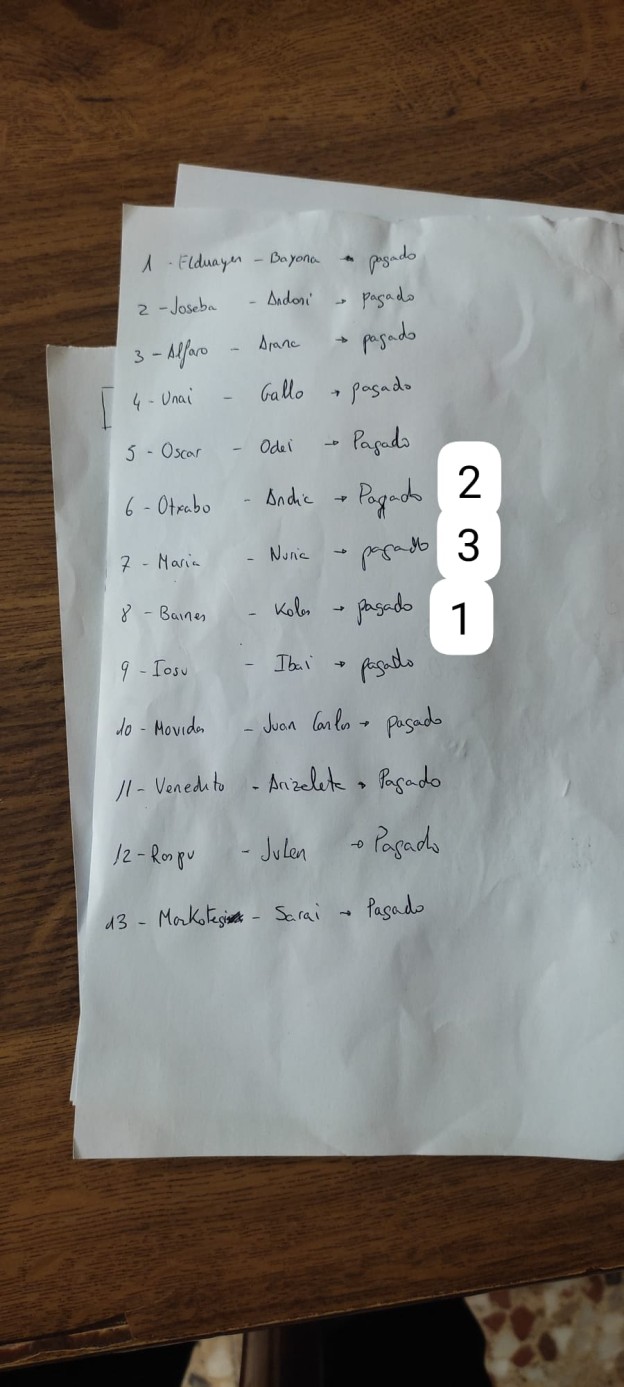 1 - Elduayen - Bayona → pagado
2 - Joseba - Andoni → pagado
3 - Alfaro - Aranc → pagado
4 - Unai - Gallo → pagado
5 - Oscar - Odei → Pagado
6 - Otxabo - Andic → Pagado 2
7 - Maria - Nuric → pagado 3
8 - Baines - Kolos → pagado 1
9 - Iosu - Ibai → pagado
10 - Movidos - Juan Carlos → pagado
11 - Venedito - Arizcleta → Pagado
12 - - Julen → Pagado
13 - - Sarai → Pagado